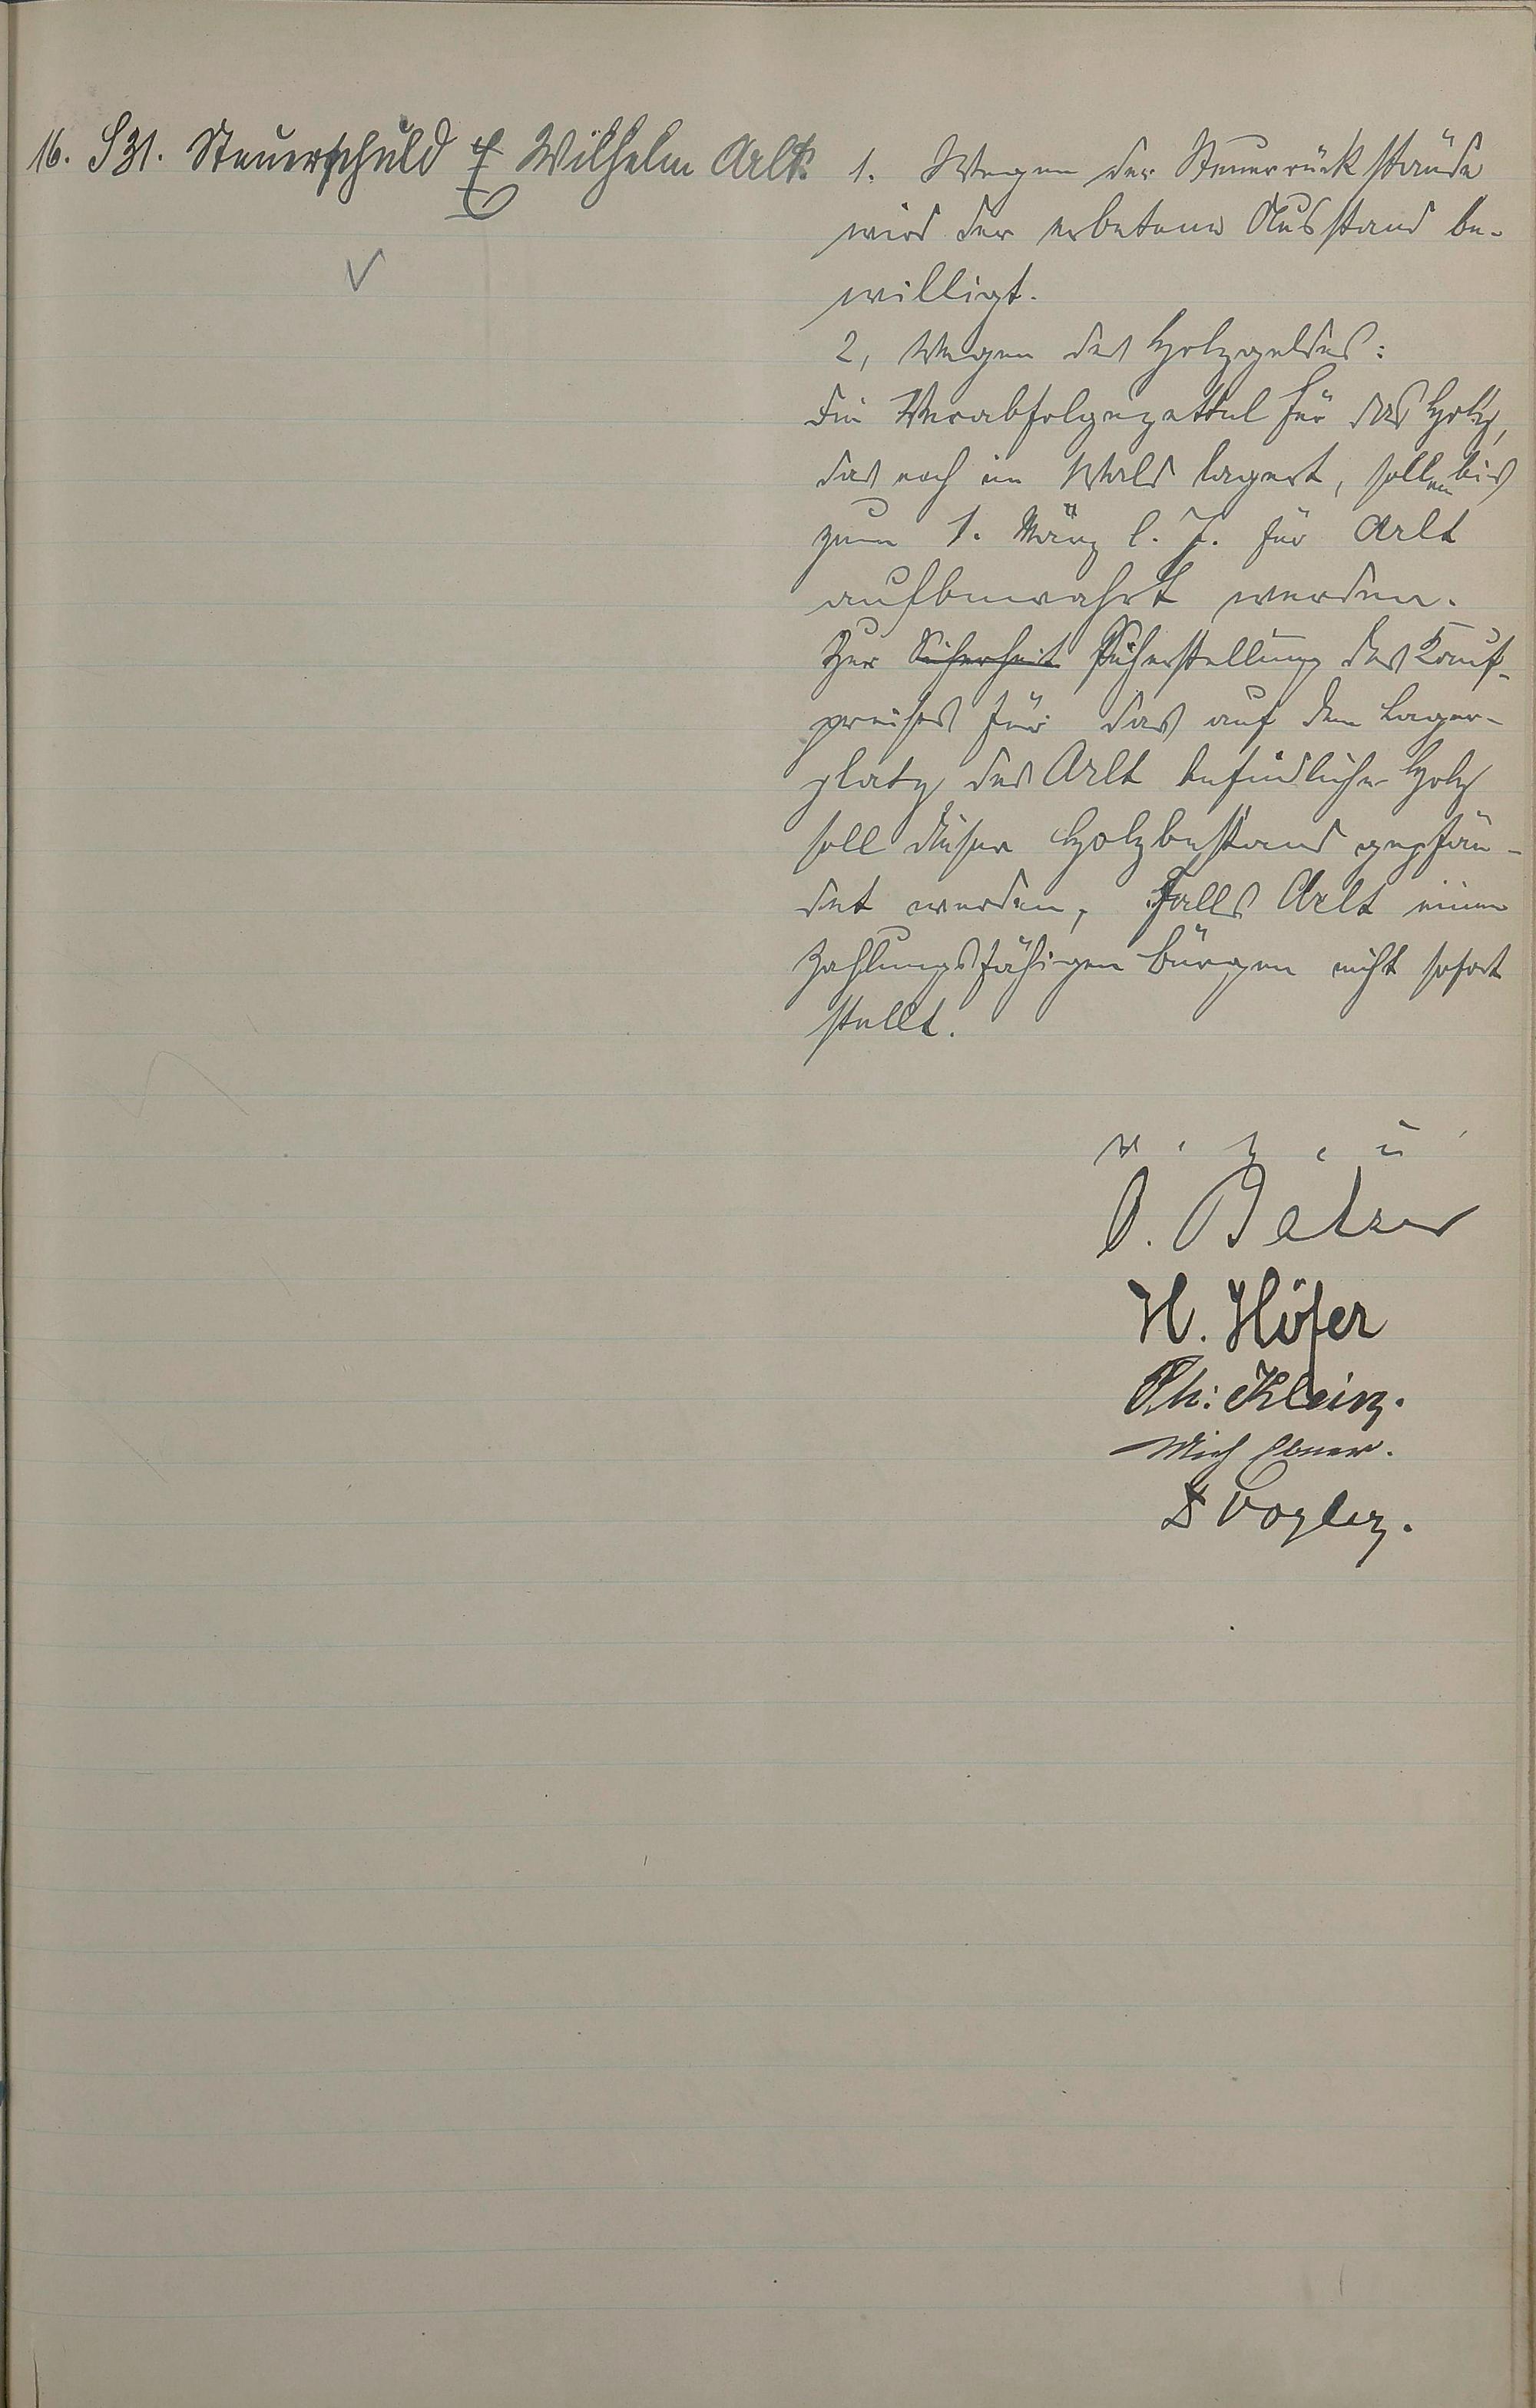 16. S 31. Steuerschuld Wilhelm Arlt.
1. Wegen der Steuerrückstände
wird der erbetene Ausstand be-
willigt.
2, Wegen des Holzgeldes:
Die Verabfolgezettel für das Holz,
das noch im Wald lagert, sollen bis
zum 1. März l. J. für Arlt
aufbewahrt werden.
Zur Sicherheit Sicherstellung des Kauf-
preises für das auf dem Lager-
platz des Arlt befindliche Holz
soll dieser Holzbestand gepfän-
det werden, falls Arlt einen
zahlungsfähigen Bürgen nicht sofort
stellt.
v. g. u.
H. Höfer
Ph: Klein.
Mich Ebner.
Vogler.